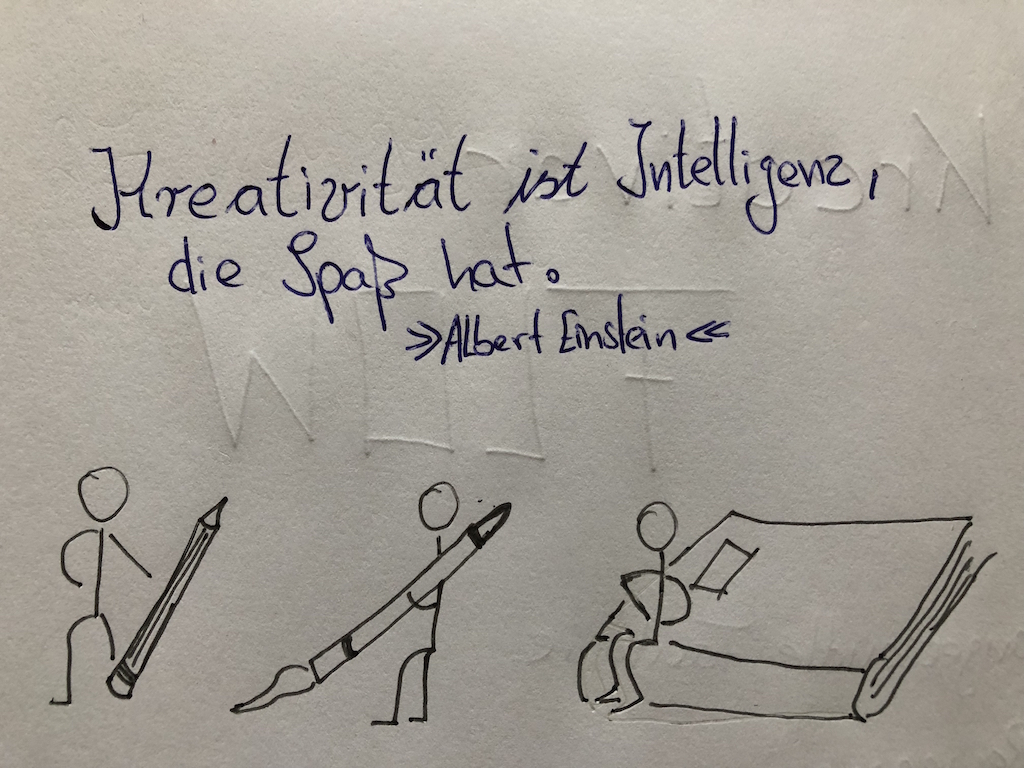 Kreativität ist Intelligenz,
die Spaß hat.
»Albert Einstein«